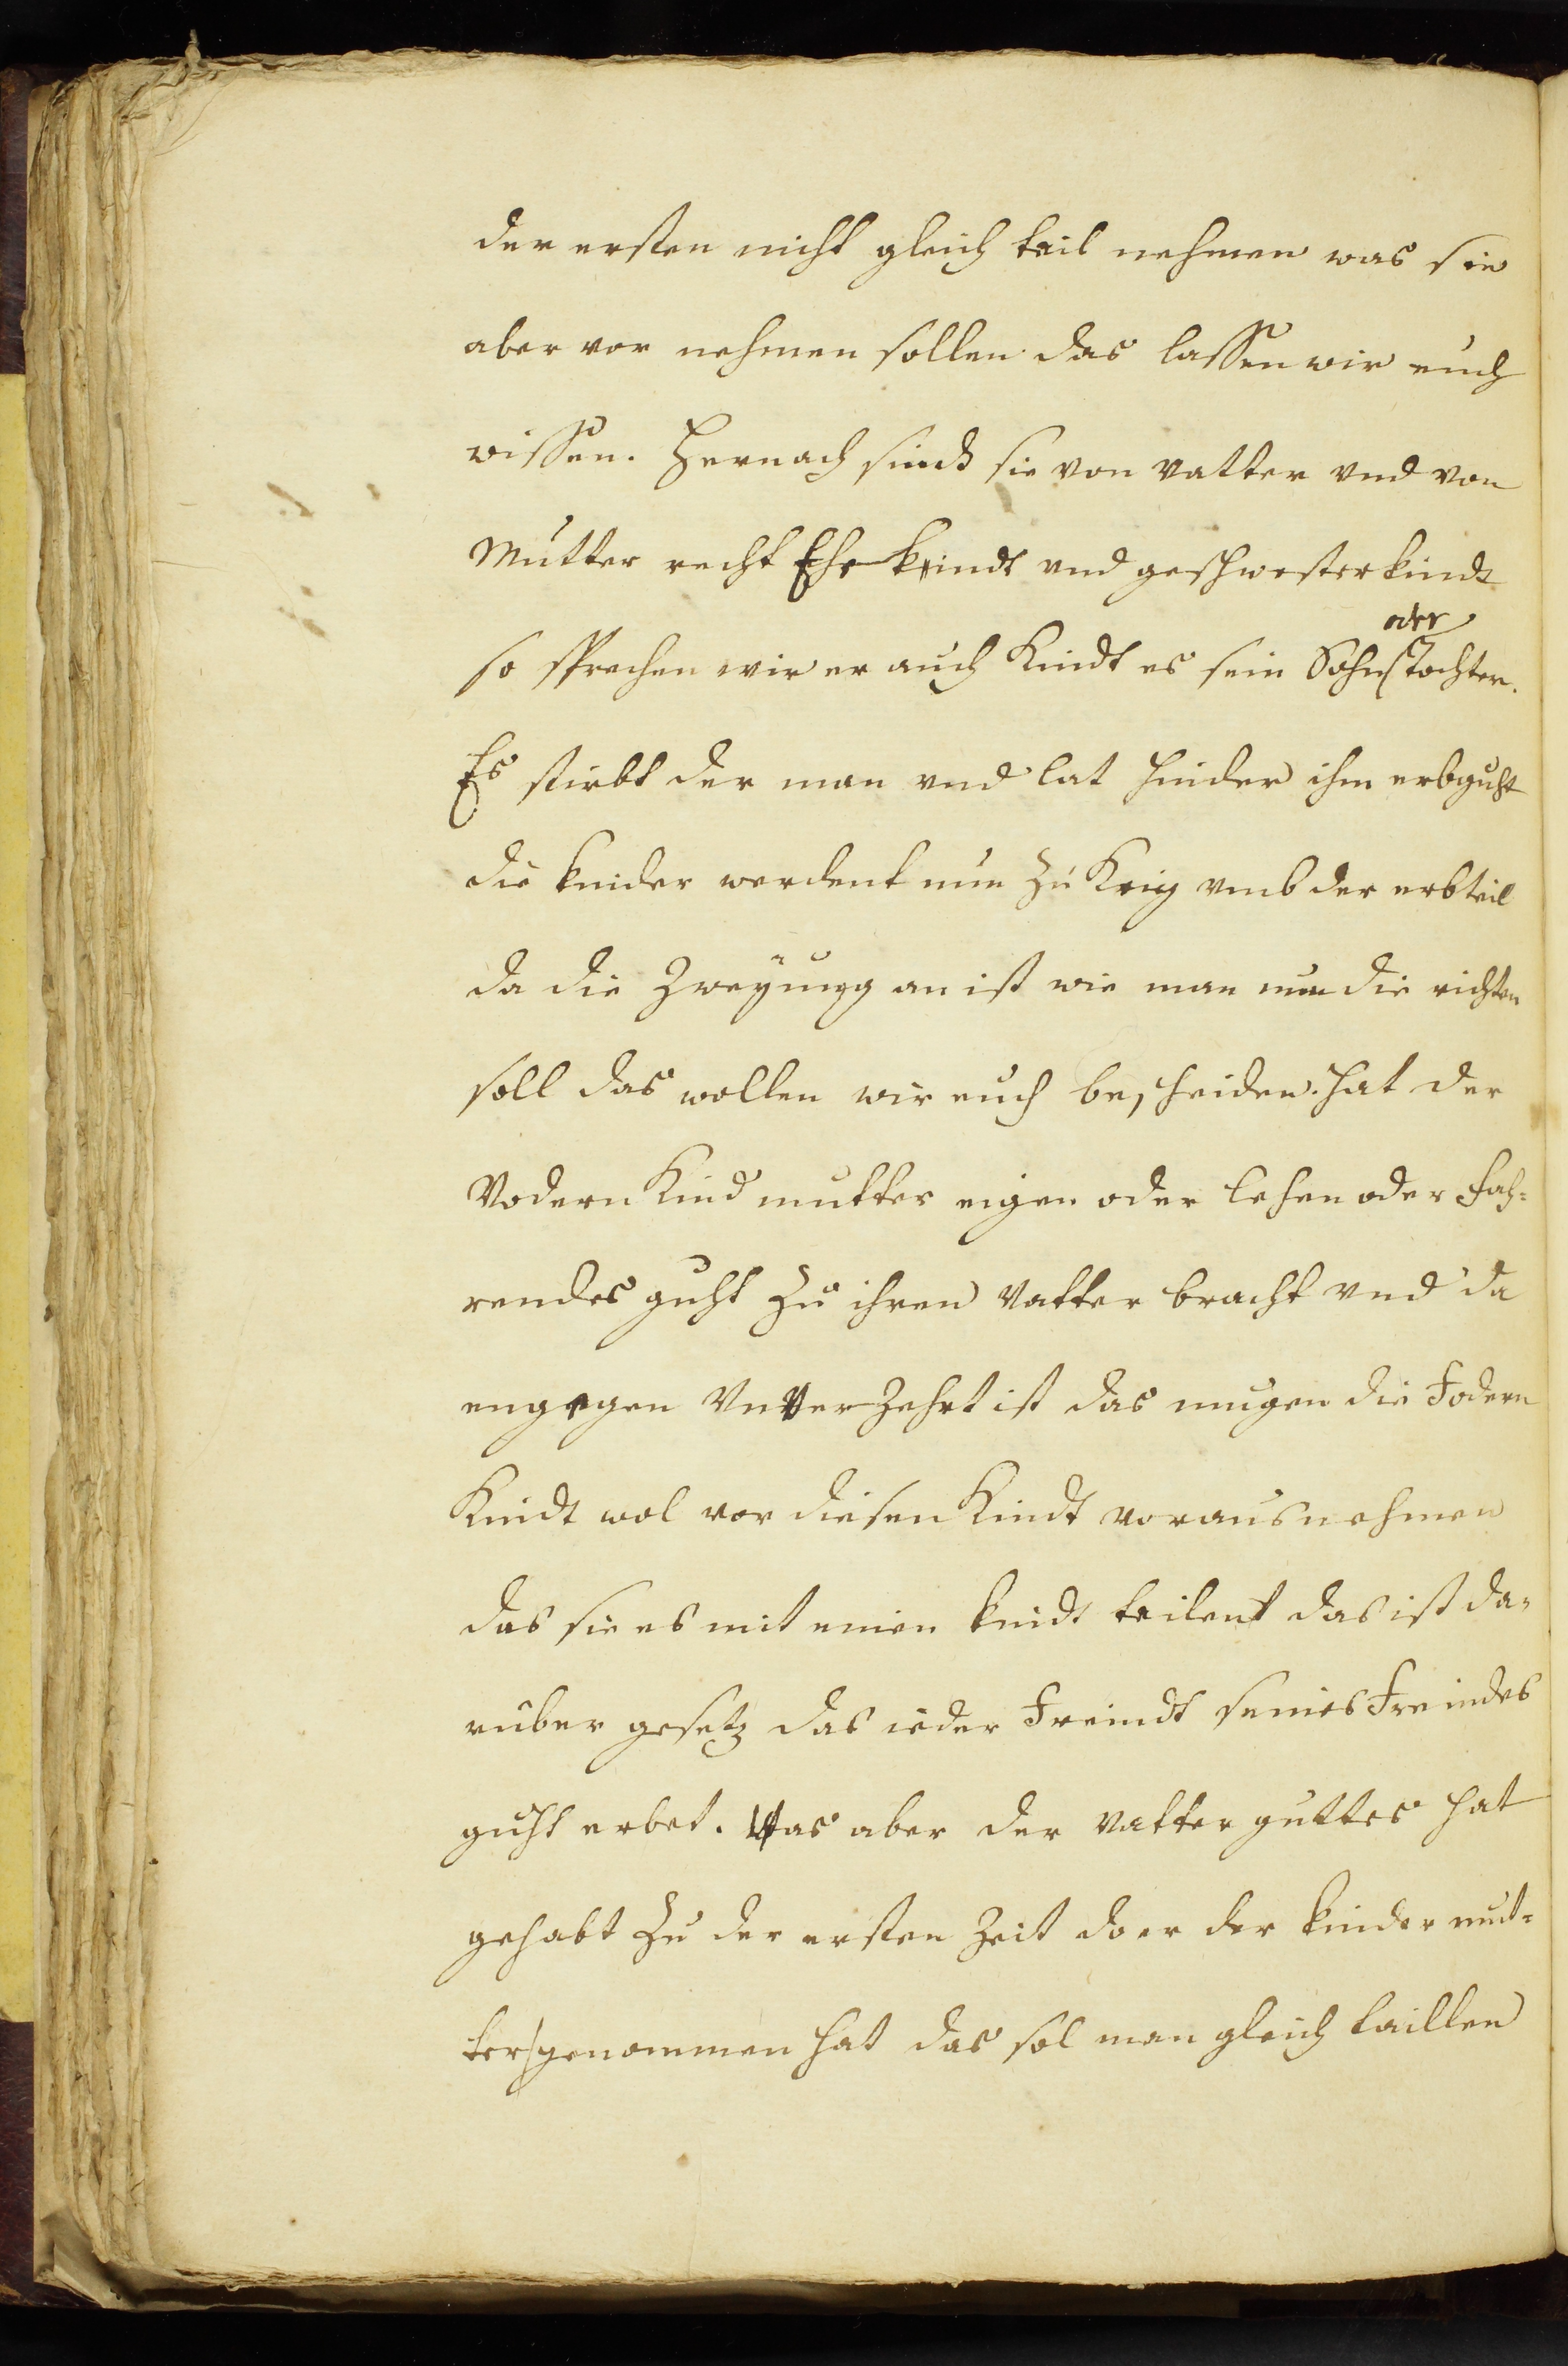 der ersten nicht gleich teil nehmen was sie
aber vor nehmen sollen das lassen wir euch
wissen. Hernach sindt sie von vatter und von
Mutter recht Ehe kindt und geschwesterkindt
oder
so sprechen wir er auch Kindt es sein Sohn Tochter.
Es stirbt der man und lat hinder ihm erbguht
die kinder werdent nun zu Krig umb der erbteil
da die Zweÿung an ist wie man nun die richten
soll das wollen wir euch bescheiden. hat der
Vodern Kind mutter eigen oder lehen oder fah-
rendes guht zu ihren Vatter bracht und da
engegen Unverzehrt ist das mugen die Fodern
Kindt wol vor diesen Kindt vorausnehmen
das sie es mit enien kindt teilent das ist da-
rüber gesetz das ieder Freindt seines Freindes
guht erbet. Was aber der Vatter guttes hat
gehabt zu der ersten Zeit do er der kinder mut-
ter genommen hat das sol man gleich taillen